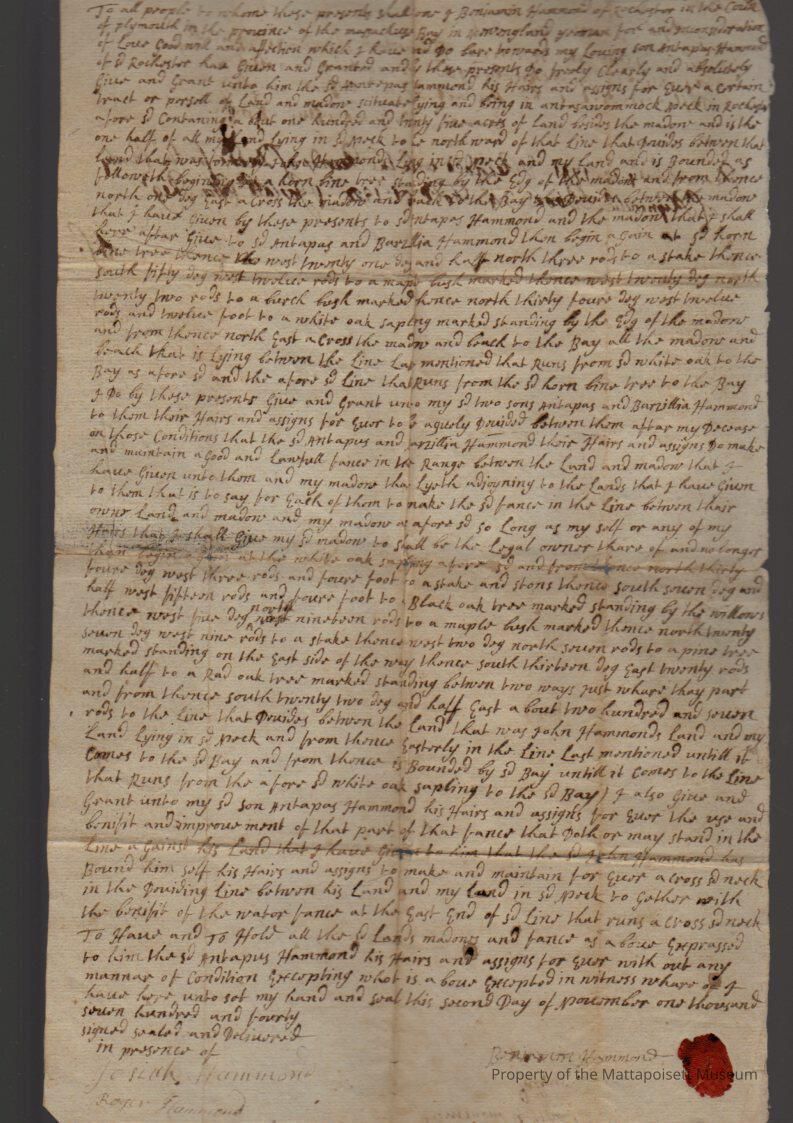 To all people to whome these presents shall come I Benjamin Hammond of Rochester in the County
of plymouth in the province of the masachuse Bay in Newengland yeoman for and in consideration
of Love Good will and affection which I have and Do bare towards my Loving son Antapas Hammond
of sd Rochester have Given and Granted and by these presents Do freely Clearly and absolutely
Give and Grant unto him the sd Antepas Hammond his Hairs and assigns for Ever a certain
tract or porsell of Land and madow scituate Lying and being in antasawommock Neck in Rochester
afore sd Containing a bout one hundred and thirty five acres of land besides the madow and is the
one half of all my Land lying in sd Neck to be north ward of that Line that Devides between that
Land that was John Hammonds Lying in sd Neck and my Land and is Bounded as
followeth begining at a horn bine tree standing by the Edg of the madow and from thence
north one deg East a Cross the madow and beach to the Bay Devides between the madow
that I have Given by these presents to sd Antapas Hammond and the madow that I shall
here after Give to sd Antapas and Barzillia Hammond then begin again at sd horn
bine tree thence west twenty one deg and half north three rods to a stake thence
south fifty deg west twelve rods to a maple bush marked thence west twenty deg north
twenty two rods to a burch bush marked thence north thirty foure deg west twelve
rods and twelve foot to a white oak sapling marked standing by the Edg of the madow
and from thence north East a Cross the madow and beach to the Bay all the madow and
beach that is Lying between the Line Last mentioned that Runs from sd white oak to the
Bay as afore sd and the afore sd Line that Runs from the sd horn bine tree to the Bay
I Do by these presents Give and Grant unto my sd two sons Antapas and Barzillia Hammond
to them their Hairs and assigns for Ever to be aquely Devided between them after my Decease
on those Conditions that the sd Antapas and Barzillia Hammond their Hairs and assigns Do make
and maintain a Good and Lawfull fance in the Range between the Land and madow that I
have Given unto them and my madow that Lyeth adjoyning to the Lands that I have Given
to them that is to say for Each of them to make the sd fance in the Line between thair
owne Land and madow and my madow as afore sd so Long as my self or any of my
Hairs that I shall Give my sd madow to shall be the Legal owner thare of and no longer
than begin again at the white oak sapling afore sd and from thence north thirty
foure deg west three rods and foure foot to a stake and stons thence south seven deg and
half west fifteen rods and foure foot to a Black oak tree marked standing by the willows
thence west five deg north nineteen rods to a muple bush marked thence north twenty
seven deg west nine rods to a stake thence west two deg north seven rods to a pine tree
marked standing on the East side of the way thence south thirteen deg East twenty rods
and half to a Rad oak tree marked standing betwen two ways just whare thay part
and from thence south twenty two deg and half East a bout two hundred and seven
rods to the Line that Devides between the Land that was John Hammonds Land and my
Land Lying in sd Neck and from thence Easterly in the Line Last mentioned untill it
Comes to the sd Bay and from thence is Bounded by sd Bay untill it Comes to the Line
that Runs from the a fore sd white oak sapling to the sd Bay I also Give and
Grant unto my sd son Antapas Hammond his Hairs and assigns for Ever the use and
benifit and improvement of that part of that fance that Doth or may stand in the
Line a Gainst his Land that I have Given to him that the sd John Hammond has
Bound him self his Hairs and assigns to make and maintain for Ever a cross sd neck
in the Deviding Line between his Land and my Land in sd Neck to Gether with
the benifit of the wator fance at the East End of sd Line that runs a Cross sd neck
To Have and To Hold all the sd Lands madows and fance as a bove Exprassed
to him the sd Antapas Hammond his Hairs and assigns for Ever with out any
mannar of Condition Excepting what is a bove Excepted in witness whare of I
have here unto set my hand and seal this second Day of November one thousand
seven hundred and fourty
signed sealed and Delivered
in presence of
Benjamin Hammond
Josiah Hammond
Roger Hammond
Property of the Mattapoisett Museum